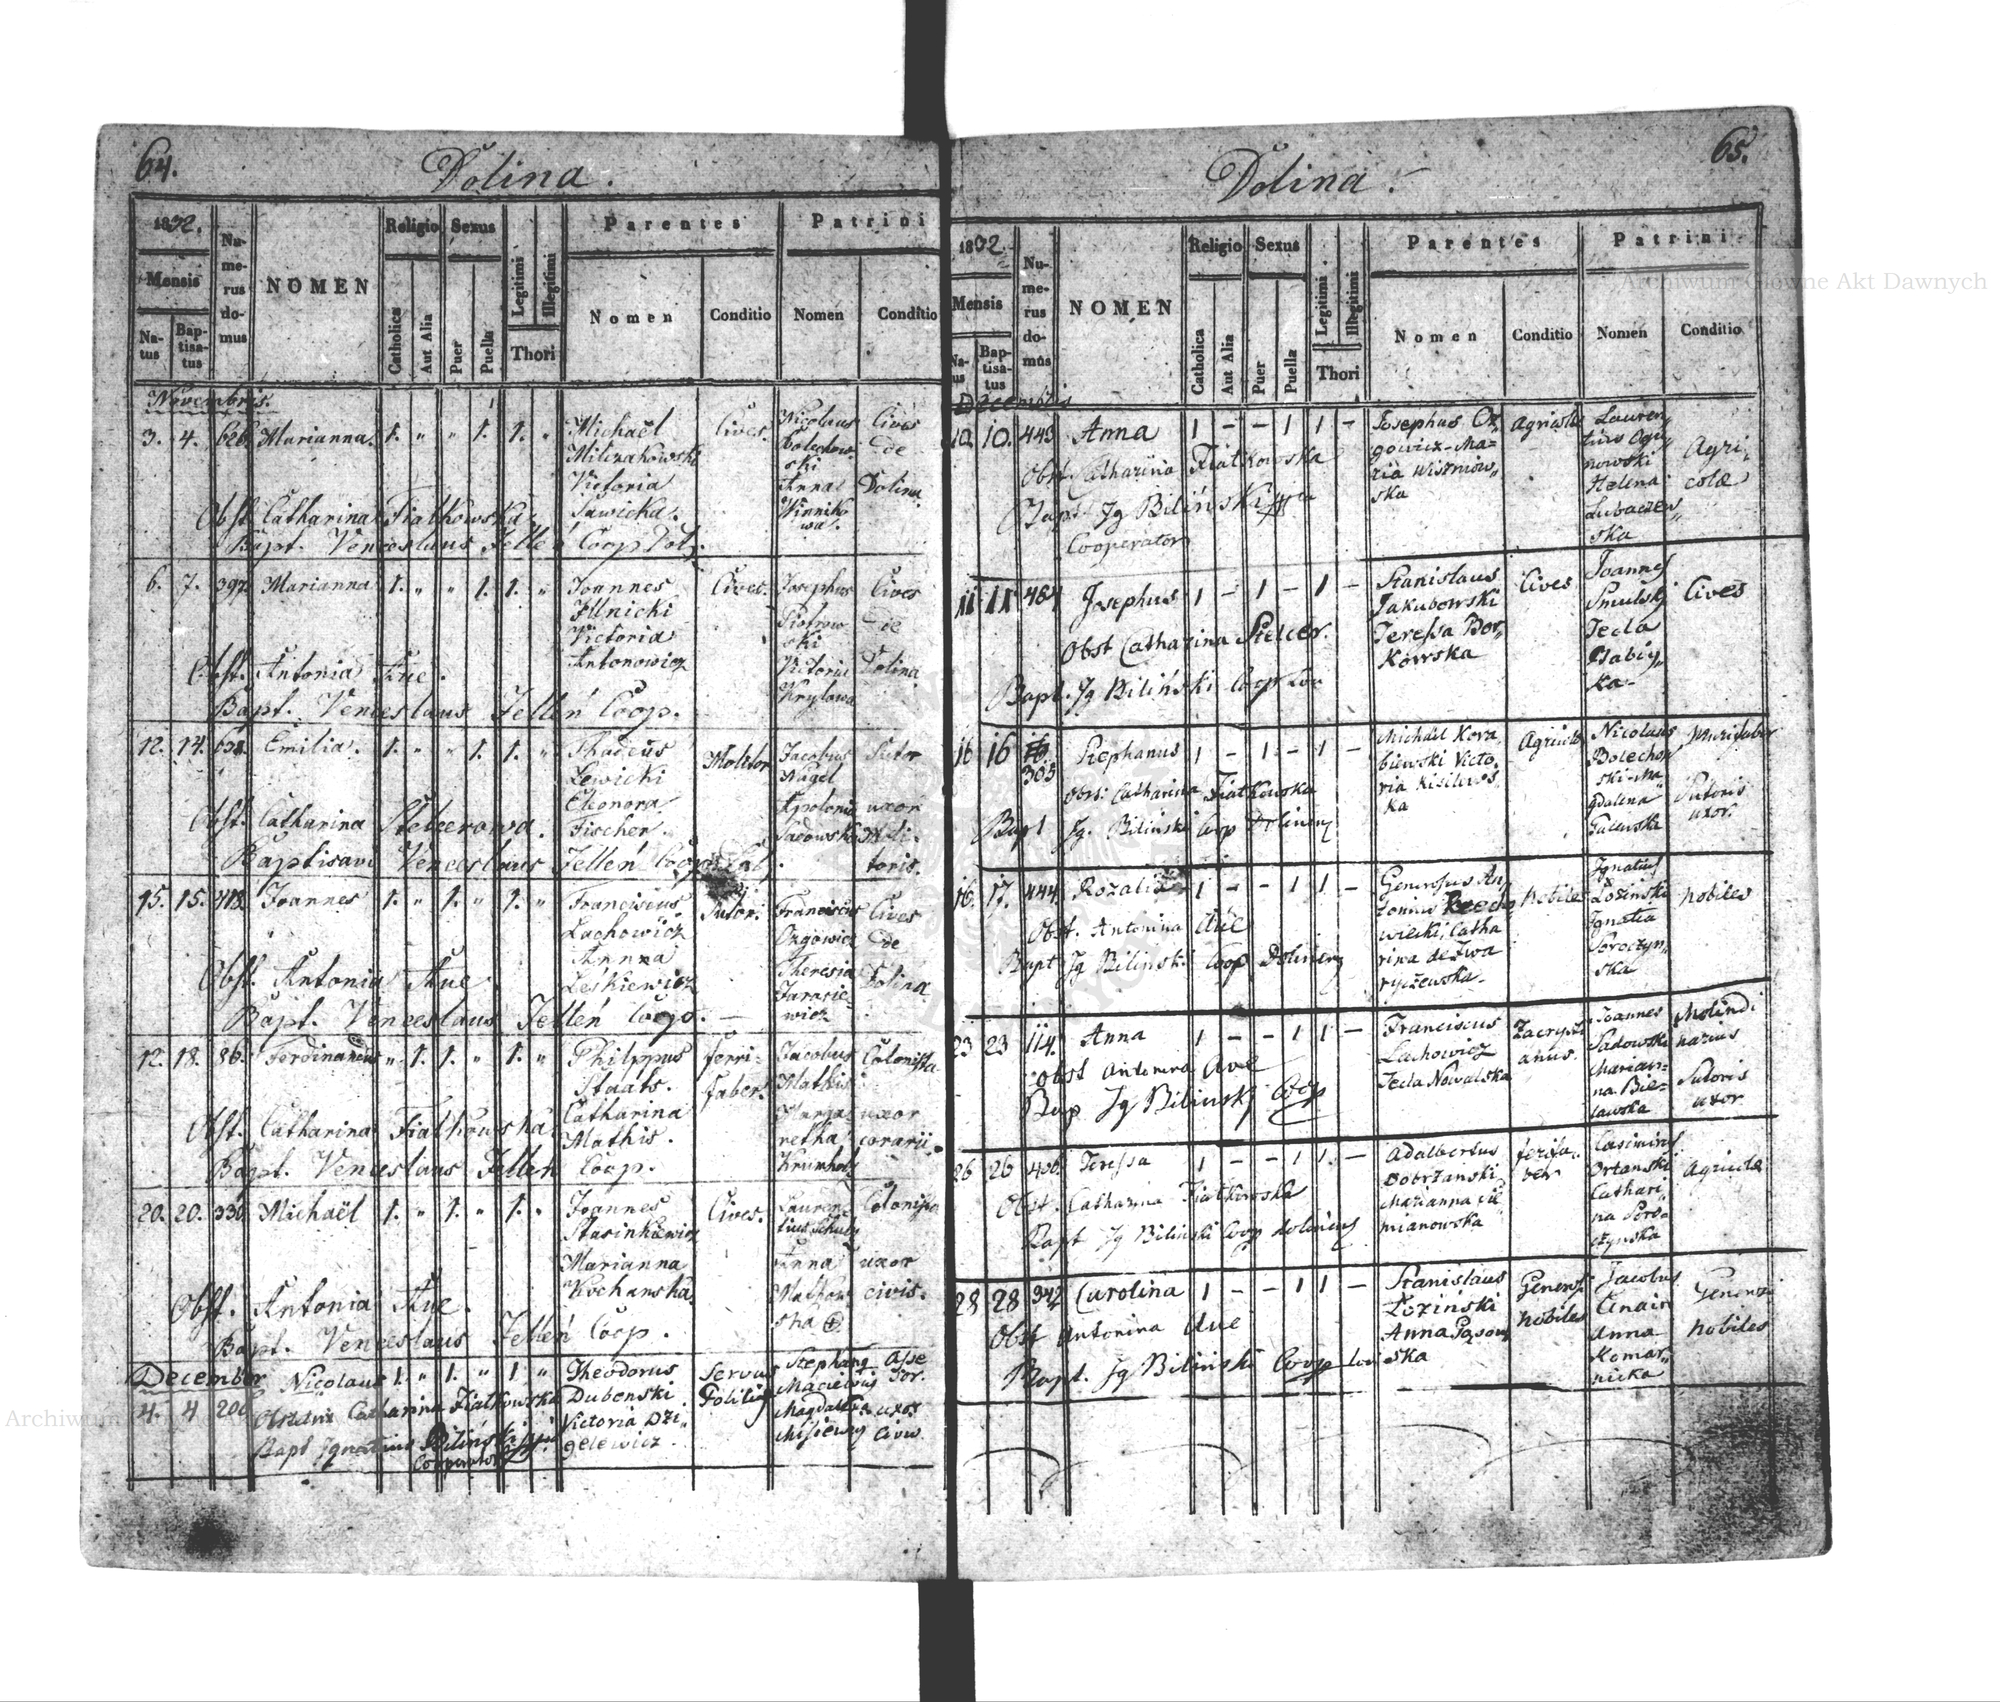 64.
Dolina.
1832.
Mensis
Na-
tus
Bap-
tisa-
tus
Nu-
me-
rus
do-
mus
NOMEN
Religio
Catholica
Aut Alia
Sexus
Puer
Puella
Legitimi
Illegitimi
Thori
Parentes
Nomen
Conditio
Patrini
Nomen
Conditio
Novembris.
3. 4. 626. Marianna. 1. " " 1. 1. "
Michaël
Victoria
Sawicka.
Cives.
Nicolaus
Bolechow
ski
Anna
Winniko
wa.
Cives
de
Dolina
Obst. Catharina Fiatkowska.
Bapt. Venceslaus Jelleń Coop. Dol.
6. 7. 397. Marianna 1. " " 1. 1. "
Joannes
Illnicki
Victoria
Antonowicz
Cives.
Josephus
Piotrow
ski
Victoria
Krylowa
Cives
de
Dolina
Obst. Antonia Aue.
Bapt. Venceslaus Jelleń Coop.
12. 14. Emilia. 1. " " 1. 1. "
Thadeus
Lewicki
Eleonora
Fischer.
Molitor
Jacobus
Nagel
Apolonia
Sadowska
Sutor
uxor
Moli-
toris.
Obst. Catharina Stelcerowa.
Baptisavi Venceslaus Jelleń Coop. Dol.
15. 15. 413. Joannes 1. " 1. " 1. "
Franciscus
Lachowicz
Anna
Leskiewicz
Sutor.
Franciscus
Ozgowicz
Theresia
Tarasie-
wicz
Cives
de
Dolina
Obst. Antonia Aue.
Bapt. Venceslaus Jelleń Coop.
12. 18. 86. Ferdinandus " 1. 1. " 1. "
Philippus
Staats.
Catharina
Mathis.
ferri-
faber.
Jacobus
Mathis
Marga-
retha
Krumholz
Colonista
uxor
corarii.
Obst. Catharina Fiatkowska
Bapt. Venceslaus Jelleń Coop.
20. 20. 330. Michaël 1. " 1. " 1. "
Joannes
Stasinkiewicz
Marianna
Kochanska.
Cives.
Lauren-
tius Schulz
Anna
Malkow
ska
Colonista
uxor
civis.
Obst. Antonia Aue.
Bapt. Venceslaus Jelleń Coop.
December
4. 4 200 Nicolaus 1. " 1. " 1 "
Theodorus
Dubenski
Victoria Dzi-
gelewicz.
Servus
Politiy
Stephang
Magdalena
Asse
sor.
uxor
Civis
Obstetrix Catharina Fiatkowska
Bapt Ignatius Biliński
Cooperator
65.
Dolina.
1832.
Mensis
Na-
tus
Bap-
tisa-
tus
Nu-
me-
rus
do-
mus
NOMEN
Religio
Catholica
Aut Alia
Sexus
Puer
Puella
Legitimi
Illegitimi
Thori
Parentes
Nomen
Conditio
Patrini
Nomen
Conditio
Decembris
10. 10. 443 Anna 1 – – 1 1 –
Josephus Oz
gowicz-Ma=
ria Wiszniow„
ska
Agricola
Lauren„
tius Ogu„
nowski
Helena
Lubaczew„
ska
Agri„
colæ
Obst. Catharina Fiatkowska
Bapt Jg Biliński
Cooperator
11 11 484 Josephus 1 – 1 – 1 –
Stanislaus
Jakubowski
Teressa Bor„
kowska
Cives
Joannes
Smulski
Tecla
Babiy„
ka
Cives
Obst Catharina Stelcer.
Bapt. Jg Biliński Coop Loci
16 16 303 Stephanus 1 – 1 – 1 –
Michael Kora
biewski Victo„
ria Kisilews„
ka
Agricola
Nicolaus
Bolechow
ski-Ma
gdalena
Murifaber
Sutoris
uxor.
Obst: Catharina Fiatkowska
Bapt Jg. Biliński Coop Doliney
16. 17. 444. Rozalia 1 – – 1 1 –
Generosus An„
tonius
wielki, Catha
rina de Iwa
ryczewska.
Nobiles
Ignatius
Łoziński
Ignatia
Soroczyn„
ska
Nobiles
Obst. Antonina Aue
Bapt Jg Biliński Coop Doliney
23 23 114. Anna 1 – – 1 1 –
Franciscus
Lachowicz
Tecla Nowalska
Zacrysti
anus.
Joannes
Sadowski
Marian-
na Bie-
lawska
Molindi
narius
Sutoris
uxor
Obst Antonina Aue
Bap Jg Biliński Coop
26 26 406. Teressa 1 – – 1 1. –
Adalbertus
Dobrzański
Marianna Cu
mianowska
ferifa„
ber
Casimirus
Ortanski
Cathari
na Soro
czynska
Agricolæ
Obst. Catharina Fiatkowska
Bapt Jg Biliński Coop doliney
28 28 342 Carolina 1 – – 1 1 –
Stanislaus
Łoziński
Anna Gąsow
ska
Generosi
Nobiles
Jacobus
Anna
Komar„
nicka
Generosi
Nobiles
Obst Antonina Aue
Bapt. Jg Biliński Coop loci
Archiwum Główne Akt Dawnych